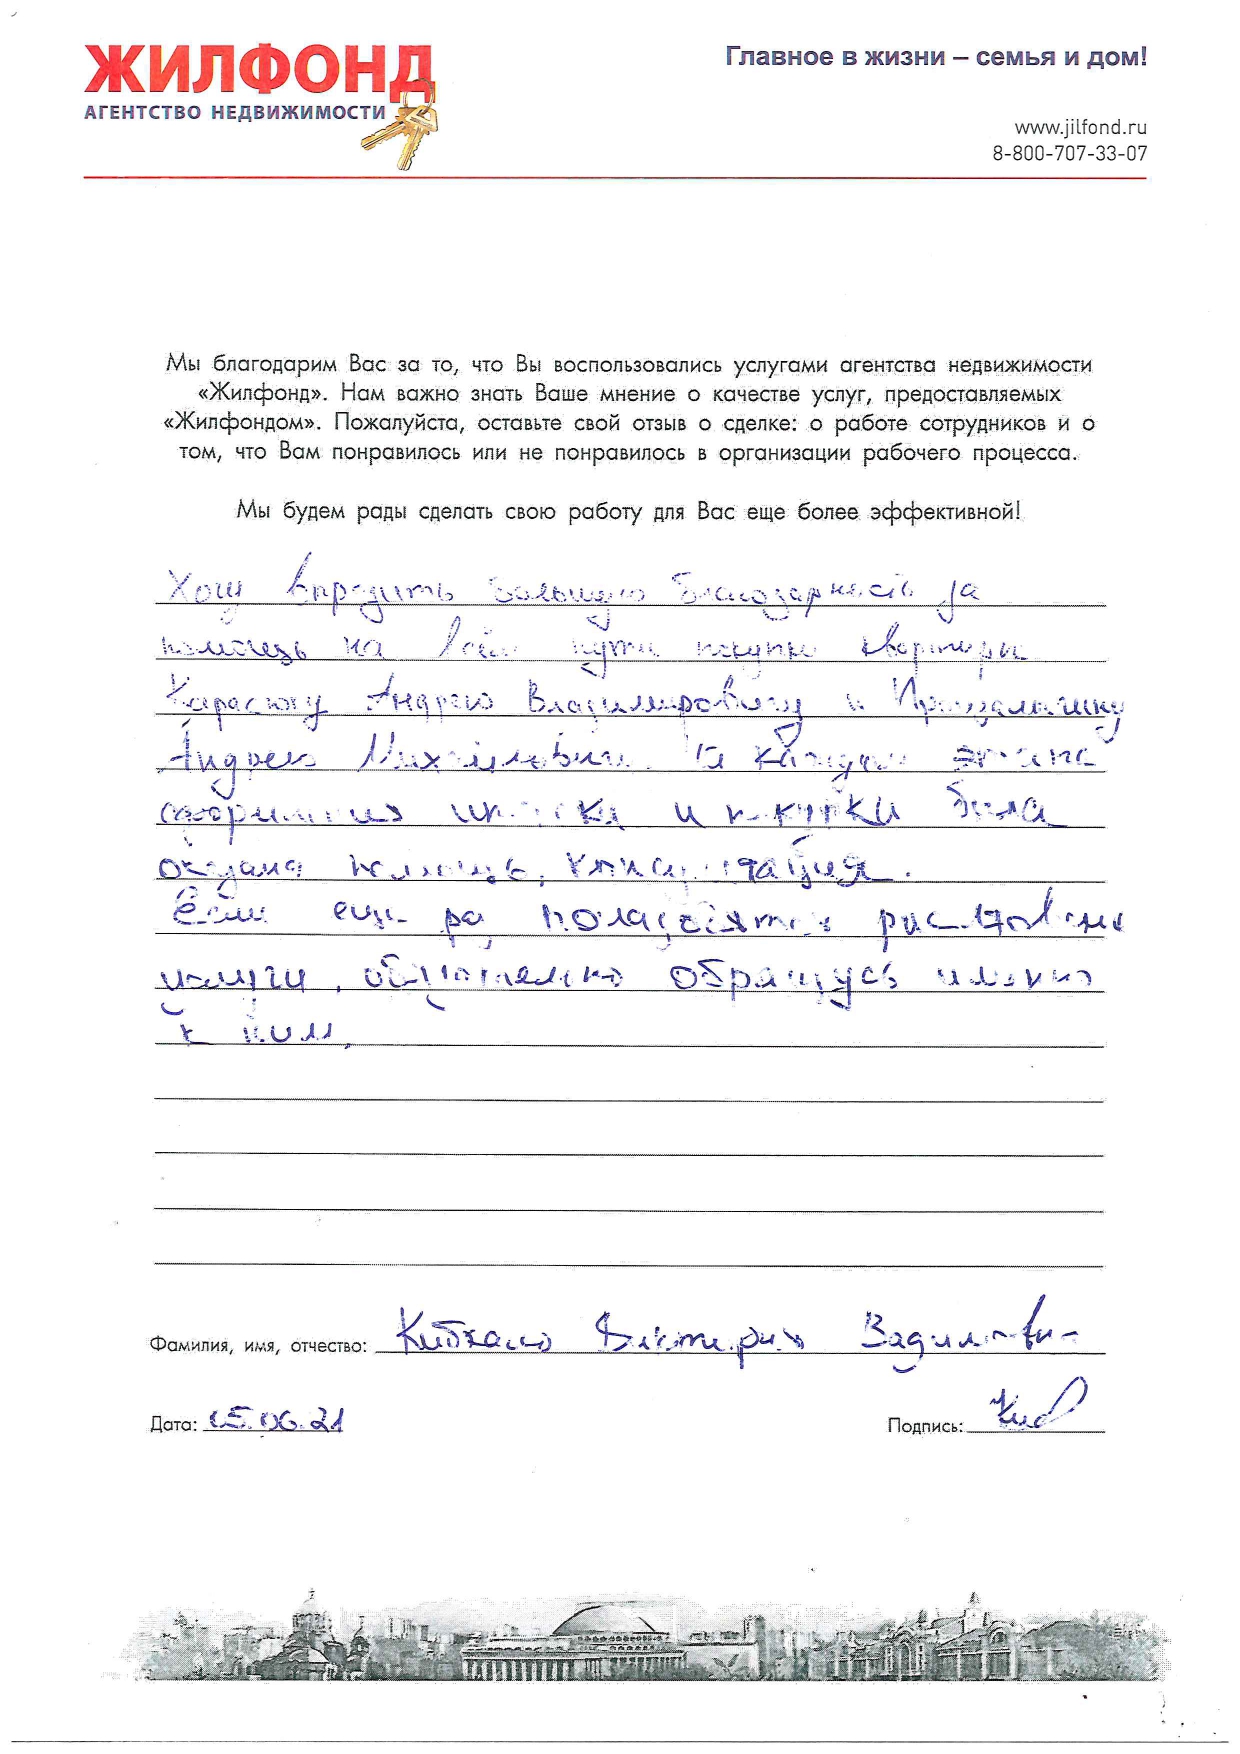 ЖИЛФОНД
АГЕНТСТВО НЕДВИЖИМОСТИ
Главное в жизни – семья и дом!
www.jilfond.ru
8-800-707-33-07
Мы благодарим Вас за то, что Вы воспользовались услугами агентства недвижимости
«Жилфонд». Нам важно знать Ваше мнение о качестве услуг, предоставляемых
«Жилфондом». Пожалуйста, оставьте свой отзыв о сделке: о работе сотрудников и о
том, что Вам понравилось или не понравилось в организации рабочего процесса.
Мы будем рады сделать свою работу для Вас еще более эффективной!
Хочу большую благодарность за
помощь на всём пути покупки квартиры
Карасюку Андрею Владимировичу и
Андрею Михайловичу. На каждом этапе
оформления ипотеки и покупки была
оказана помощь, консультация.
Если еще раз понадобятся
услуги, обязательно обращусь именно
к ним.
Фамилия, имя, отчество:
Дата: 15.06.21
Подпись: